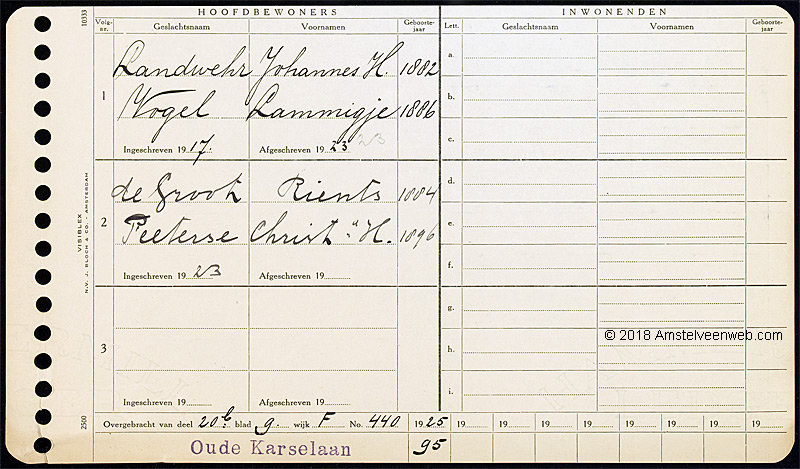 HOOFDBEWONERS INWONENDEN
Volg-nr. Geslachtsnaam Voornamen Geboorte-jaar Lett. Geslachtsnaam Voornamen Geboorte-jaar
10333
1
Landwehr Johannes H. 1882
Vogel Lammigje 1886
Ingeschreven 19 17. Afgeschreven 19 23 23
2
de Groot Rients 1884
Peeterse Christ a H. 1896
Ingeschreven 19 23 Afgeschreven 19
3
Ingeschreven 19 Afgeschreven 19
a.
b.
c.
d.
e.
f.
g.
h.
i.
VISIBLEX
N.V. J. BLOCH & CO. - AMSTERDAM
2500
© 2018 Amstelveenweb.com
Overgebracht van deel 20 b. blad 9. wijk F No. 440 1925 19 19 19 19 19 19 19 19
Oude Karselaan 95